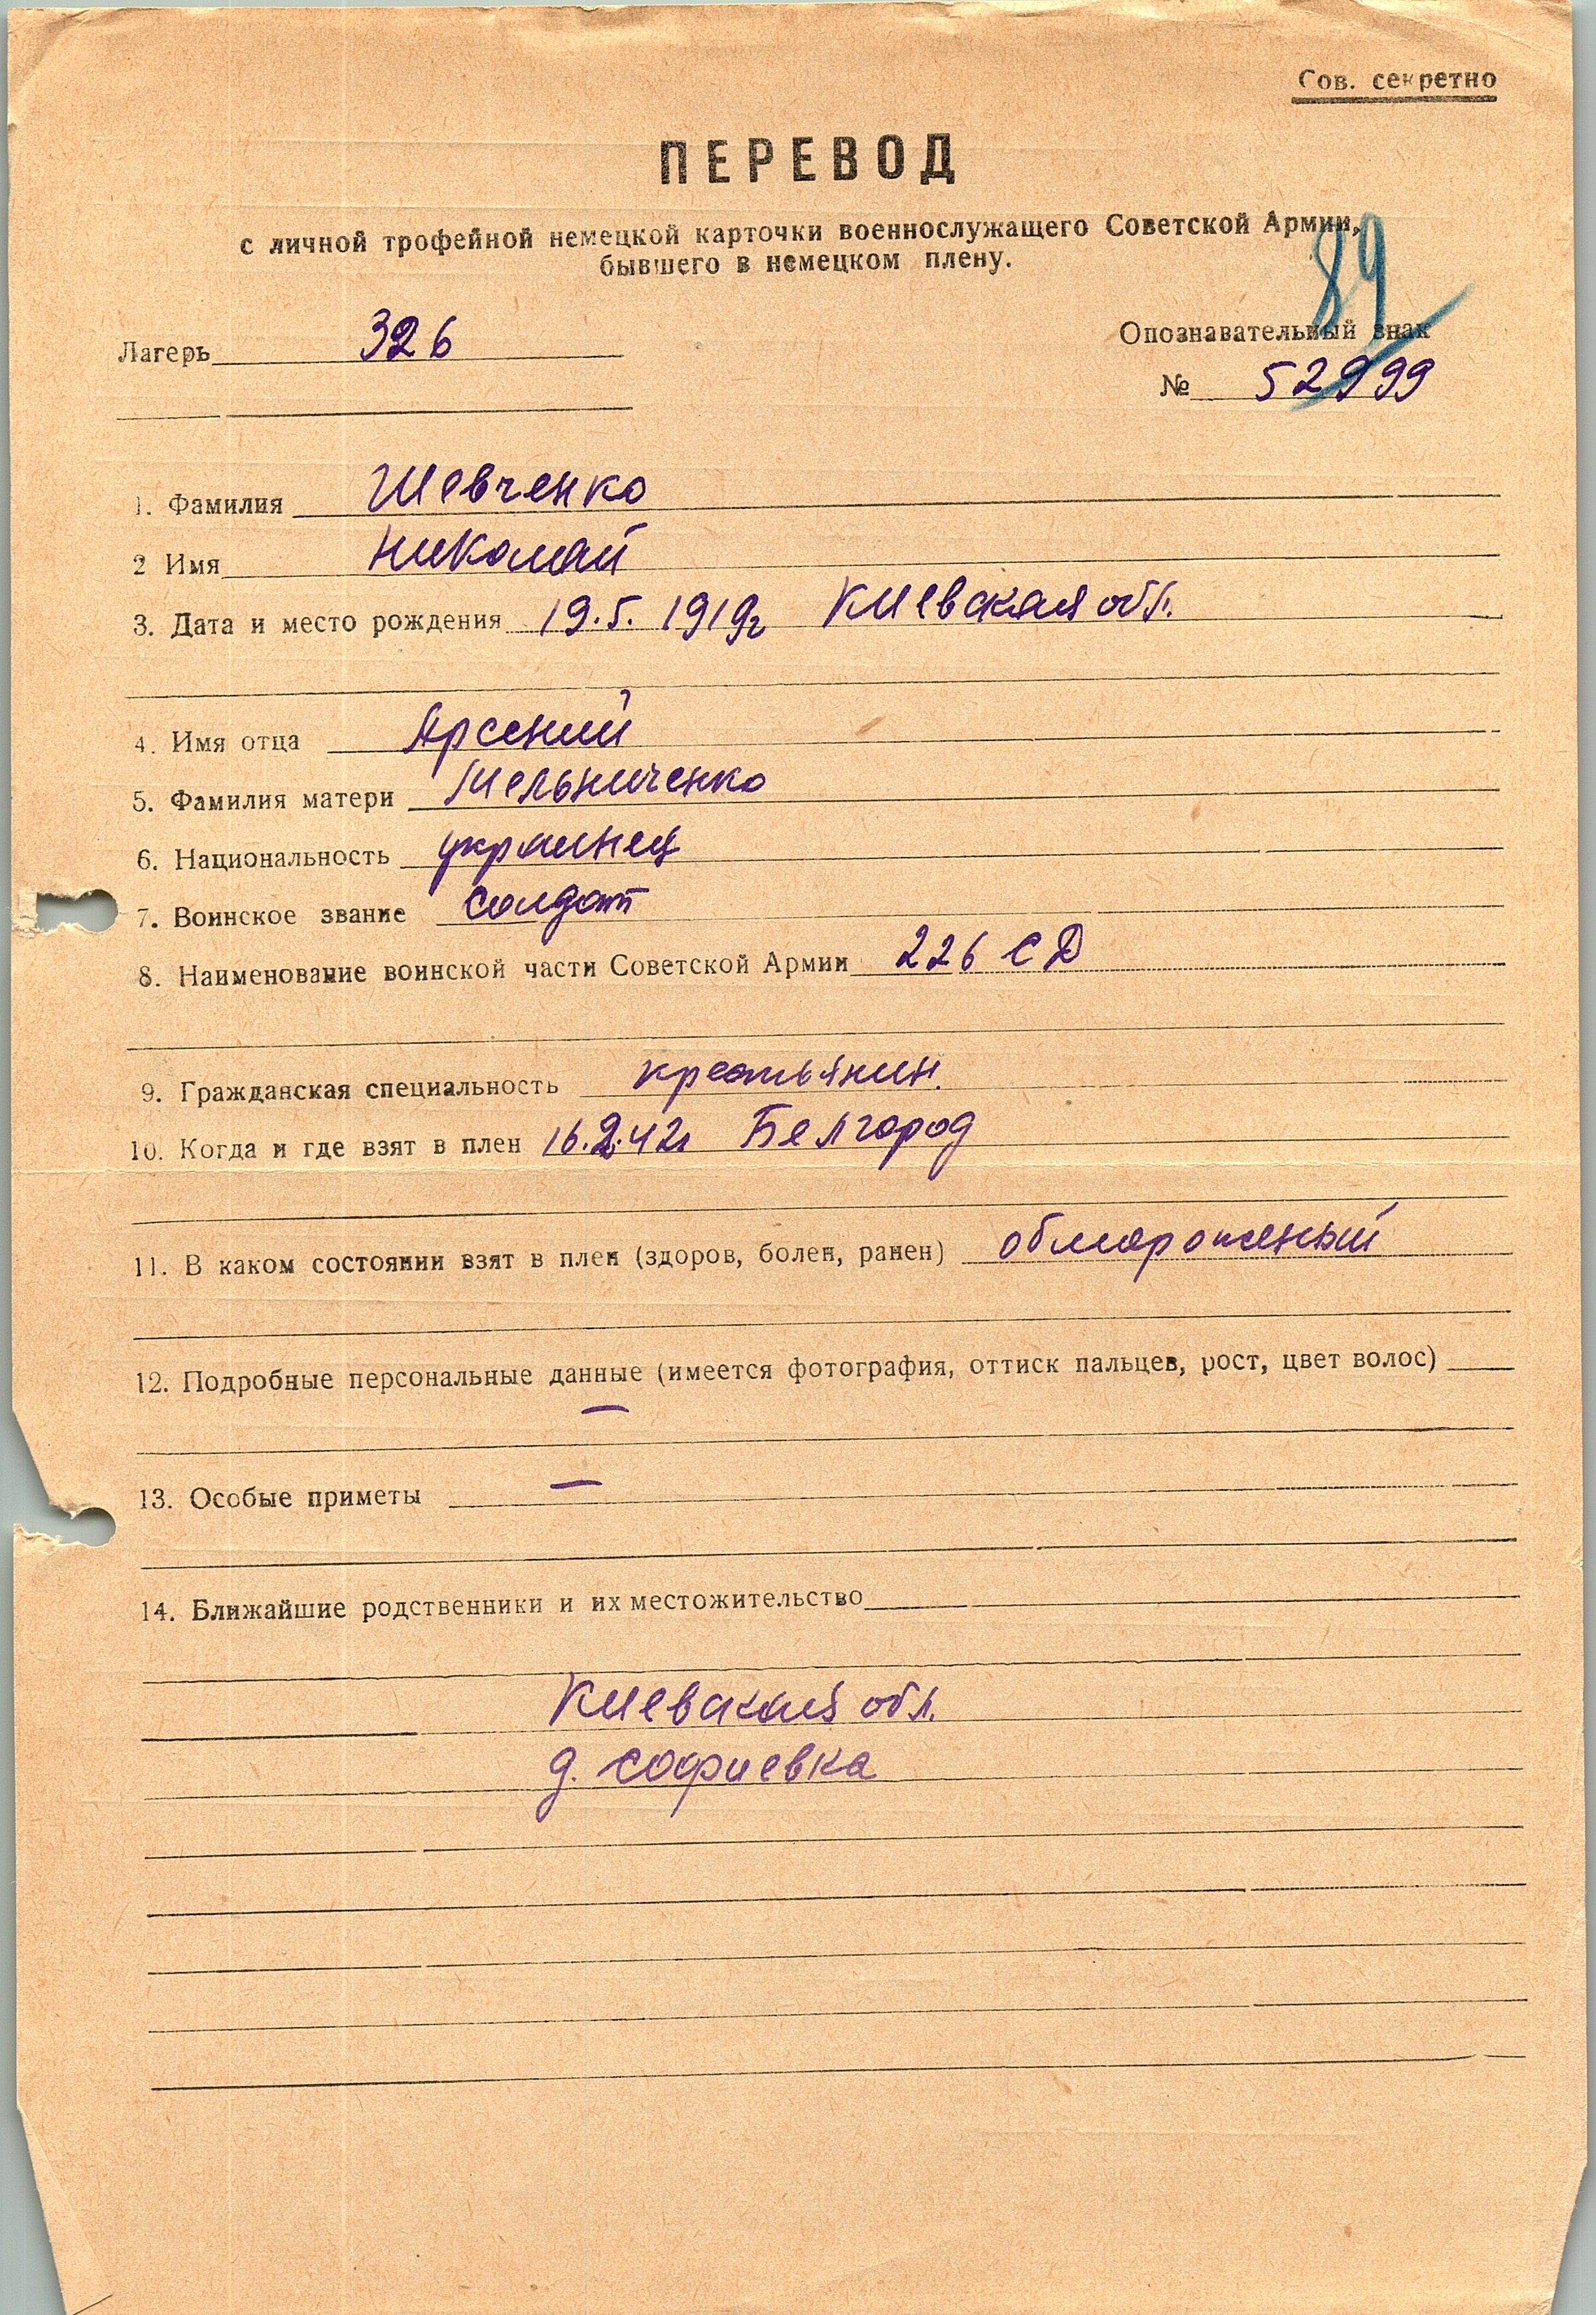 Сов. секретно
ПЕРЕВОД
с личной трофейной немецкой карточки военнослужащего Советской Армии,
бывшего в немецком плену.
89
Лагерь 326
Опознавательный знак
№ 52999
1. Фамилия Шевченко
2 Имя Николай
3. Дата и место рождения 19.5.1919г Киевская обл.
4. Имя отца Арсений
5. Фамилия матери Мельниченко
6. Национальность украинец
7. Воинское звание солдат
8. Наименование воинской части Советской Армии 226 СД
9. Гражданская специальность крестьянин
10. Когда и где взят в плен 16.2.42г Белгород
11. В каком состоянии взят в плен (здоров, болен, ранен) обмороженый
12. Подробные персональные данные (имеется фотография, оттиск пальцев, рост, цвет волос)
—
13. Особые приметы —
14. Ближайшие родственники и их местожительство
Киевская обл.
д. Софиевка